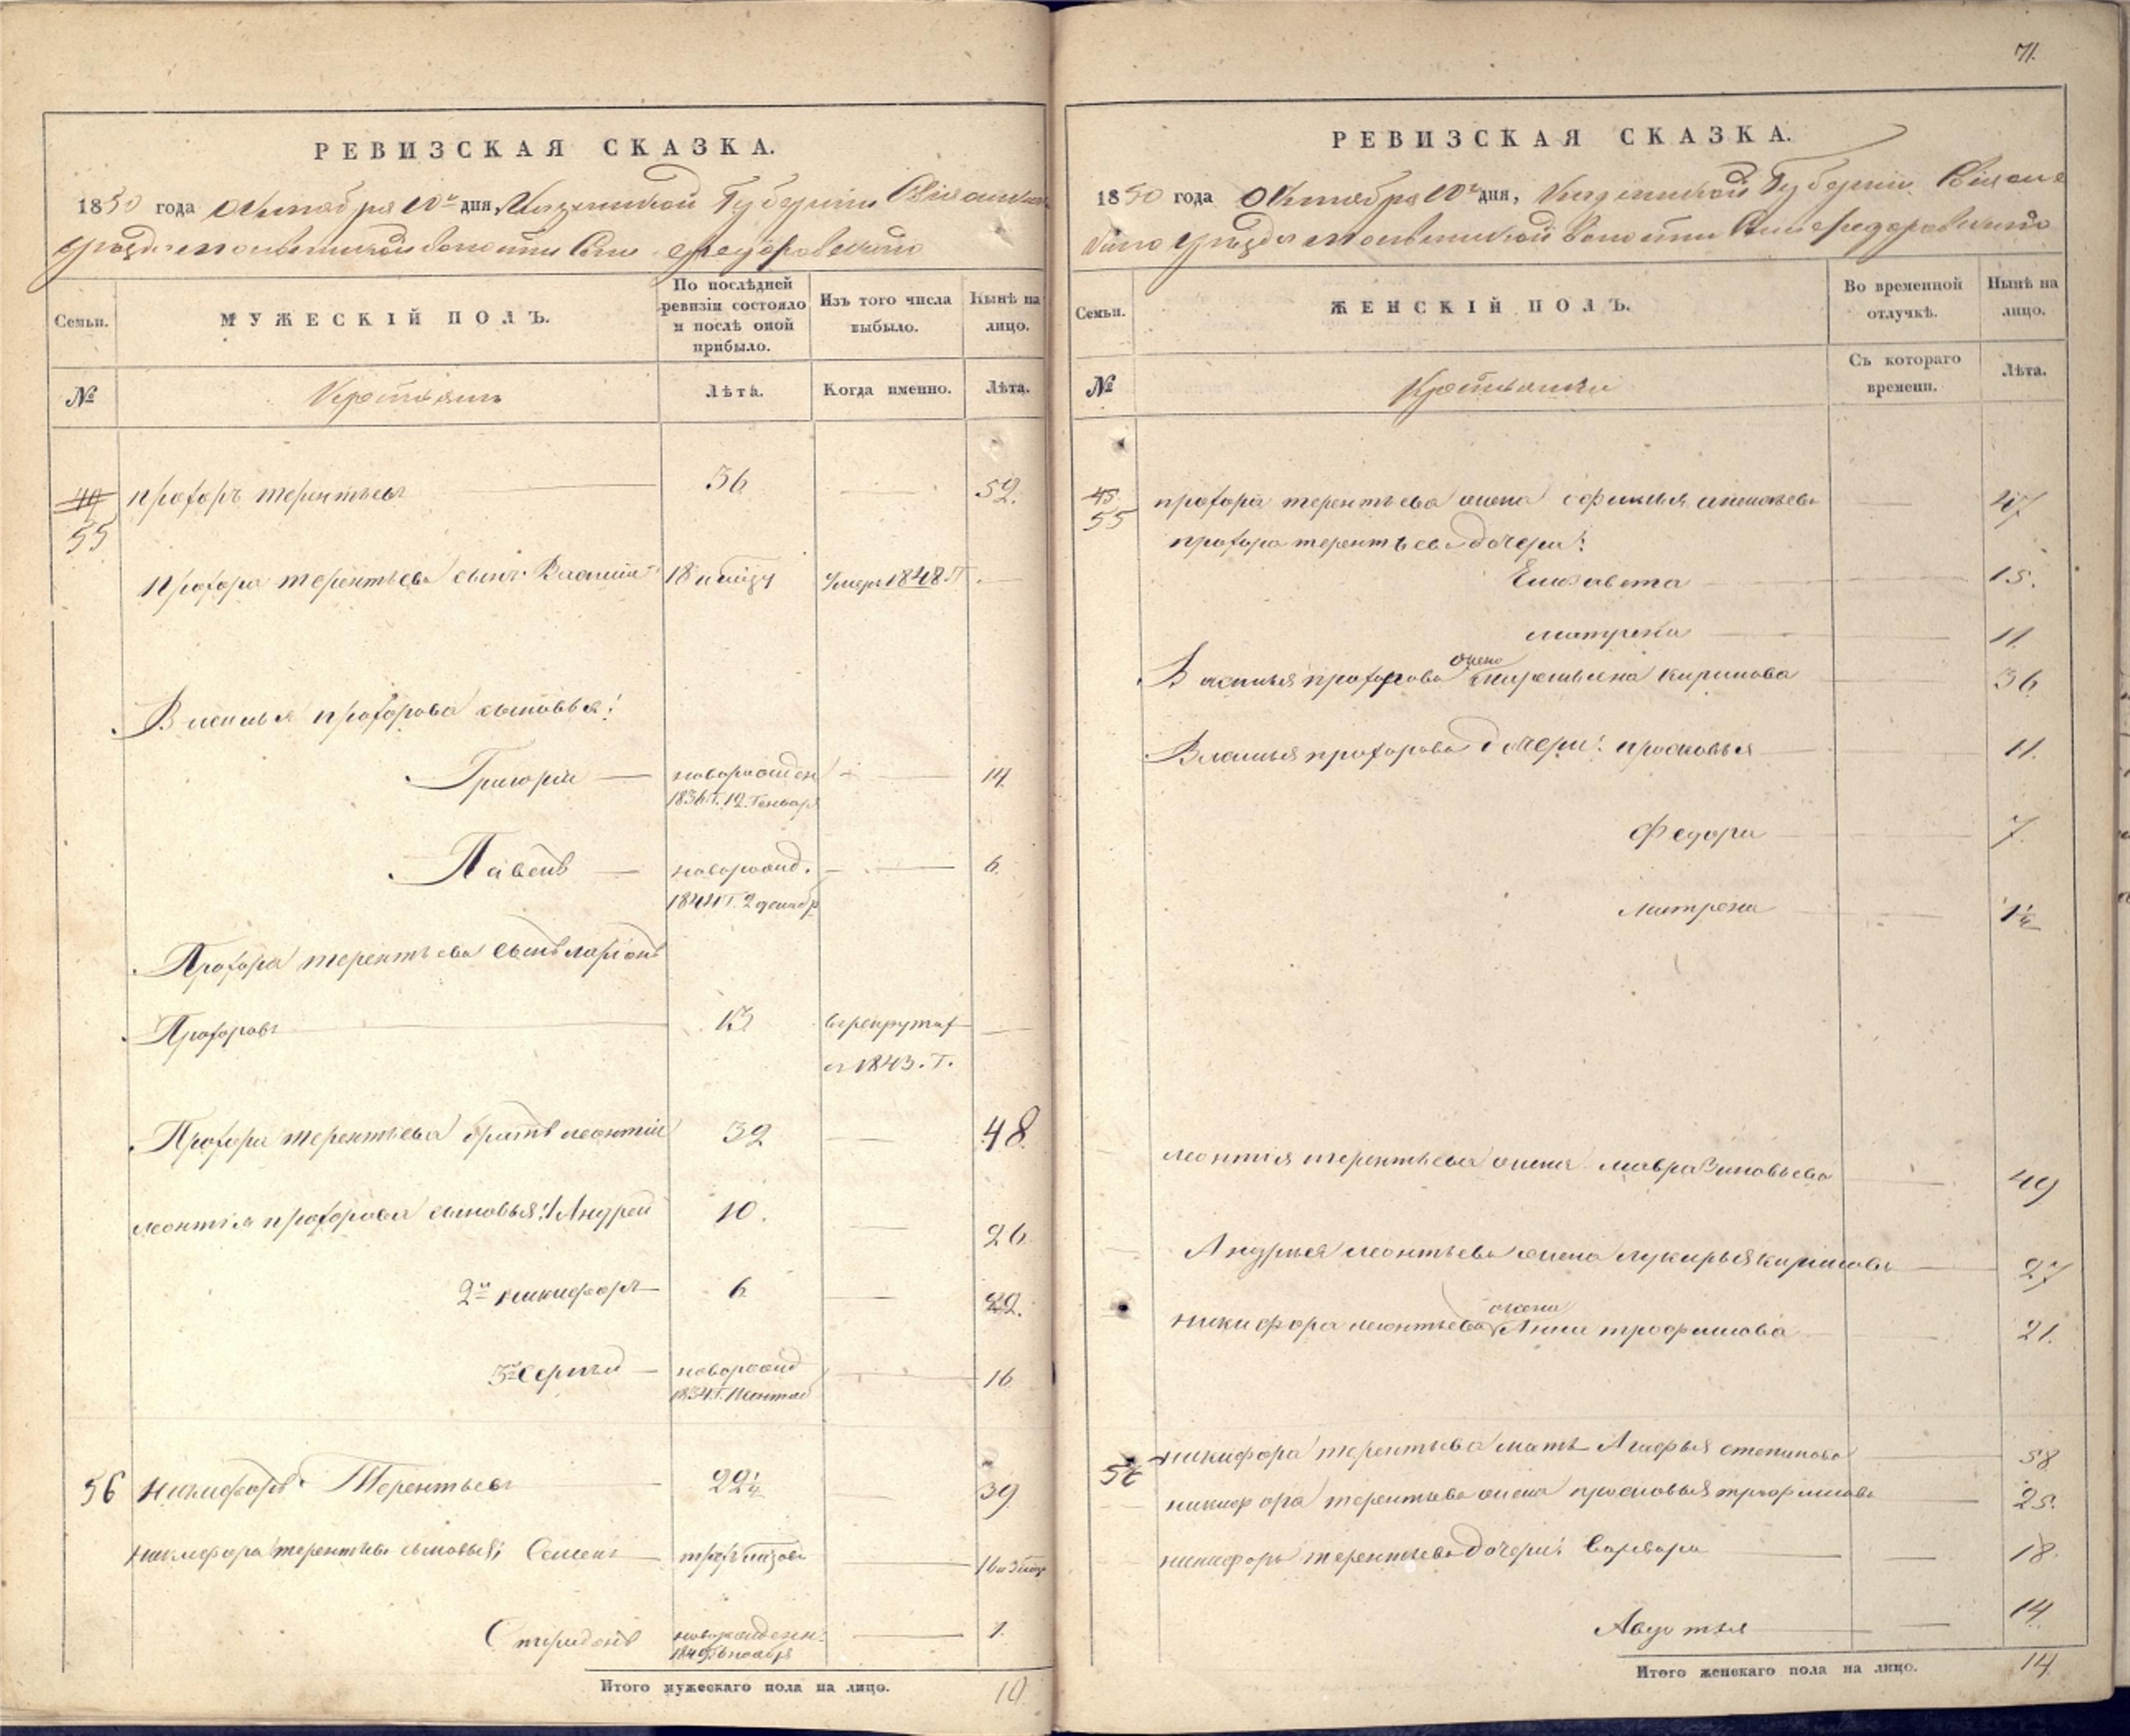 71.
РЕВИЗСКАЯ СКАЗКА.
1850 года Октября 10го дня, Казанской Губернии
уезда волости
Семьи.
МУЖЕСКІЙ ПОЛЪ.
По послѣдней ревизіи состояло и послѣ оной прибыло.
Изъ того числа выбыло.
Нынѣ на лицо.
№
Крестьянъ
Лѣта.
Когда именно.
Лѣта.
55
прохоръ терентьевъ 36 52.
Прохора терентьева сынъ Василий 18 умеръ 1848. Г.
Василья прохорова сыновья:
Григорій новорожден 14.
1836 Г. 12. Генваря
Павелъ новорожд. 6.
1844 Г. 2 декабр
Прохора терентьева сынъ ларіонъ
Прохоровъ 13 въ рекруты
въ 1843. Г.
Прохора терентьева братъ леонтий 32 48.
леонтія прохорова сыновья: 1 Андрей 10. 26
2й никифоръ 6 22.
3й Сергѣй новорожд 16
1834 Г.
56 Никифоръ Терентьевъ 22 1/4 39
никифора терентьева сыновья; Семенъ 16
Спиридонъ новорожденн. 1.
1849 ноября
Итого мужескаго пола на лицо. 10.
РЕВИЗСКАЯ СКАЗКА.
1850 года Октября 10го дня, Казанской Губернии
уезда волости
Семьи.
ЖЕНСКІЙ ПОЛЪ.
Во временной отлучкѣ.
Нынѣ на лицо.
№
Крестьянки
Съ котораго времени.
Лѣта.
45
55
прохора терентьева жена 47
прохора терентьева дочери:
Елизавета 15.
матрена 11.
жена
Василья прохорова кирилова 36
Василья прохорова дочери: просковья 11.
Федора 7.
Матрена
леонтія терентьева жена мавра Зиновьева 49
Андрея леонтьева жена лукирья кирилова 27
жена
никифора леонтьева Анна трофимова 21.
56
никифора терентьева мать Агафья степанова 58
никифора терентьева жена просковья трофимова 25.
никифора терентьева дочери: Варвара 18.
Авдотья 14.
Итого женскаго пола на лицо. 14.